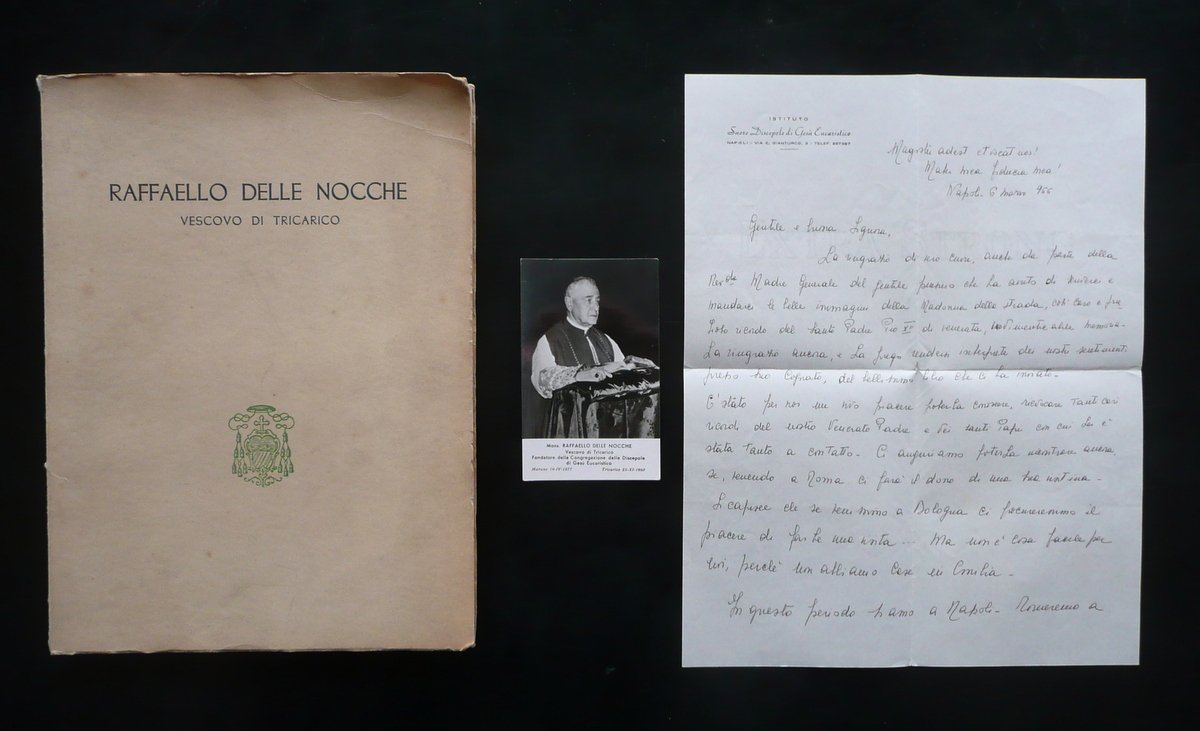 RAFFAELLO DELLE NOCCHE
VESCOVO DI TRICARICO
Mons. RAFFAELLO DELLE NOCCHE
Vescovo di Tricarico
Fondatore della Congregazione delle Discepole
di Gesù Eucaristico
Marano 19-IV-1877 Tricarico 25-XI-1960
ISTITUTO
Suore Discepole di Gesù Eucaristico
NAPOLI - VIA E. GIANTURCO, 2 - TELEF.
Magister adest et vocat nos!
Mater mea fiducia mea!
Napoli 6 marzo
Gentile e buona Signora,
La ringrazio di vivo cuore, anche da parte della
Rev.da Madre Generale del gentile pensiero che ha avuto di scriverci e
mandarci le belle immagini della Madonna della strada, così caro e
ricordo del Santo Padre Pio di venerata, indimenticabile memoria.
La ringrazio ancora, e La prego rendersi interprete dei nostri sentimenti
presso Suo Cognato, del bellissimo libro che ci ha inviato.
È stato per noi un vivo piacere poterLa conoscere, rievocare tanti cari
ricordi del nostro Venerato Padre e dei Santi Papi con cui Lei è
stata tanto a contatto. Ci auguriamo poterLa incontrare ancora,
se, venendo a Roma ci farà il dono di una Sua visitina.
Si capisce che se venissimo a Bologna ci procureremmo il
piacere di farLe una visita ... Ma non è cosa facile per
noi, perchè non abbiamo Case in Emilia.
In questo periodo siamo a Napoli. Torneremo a